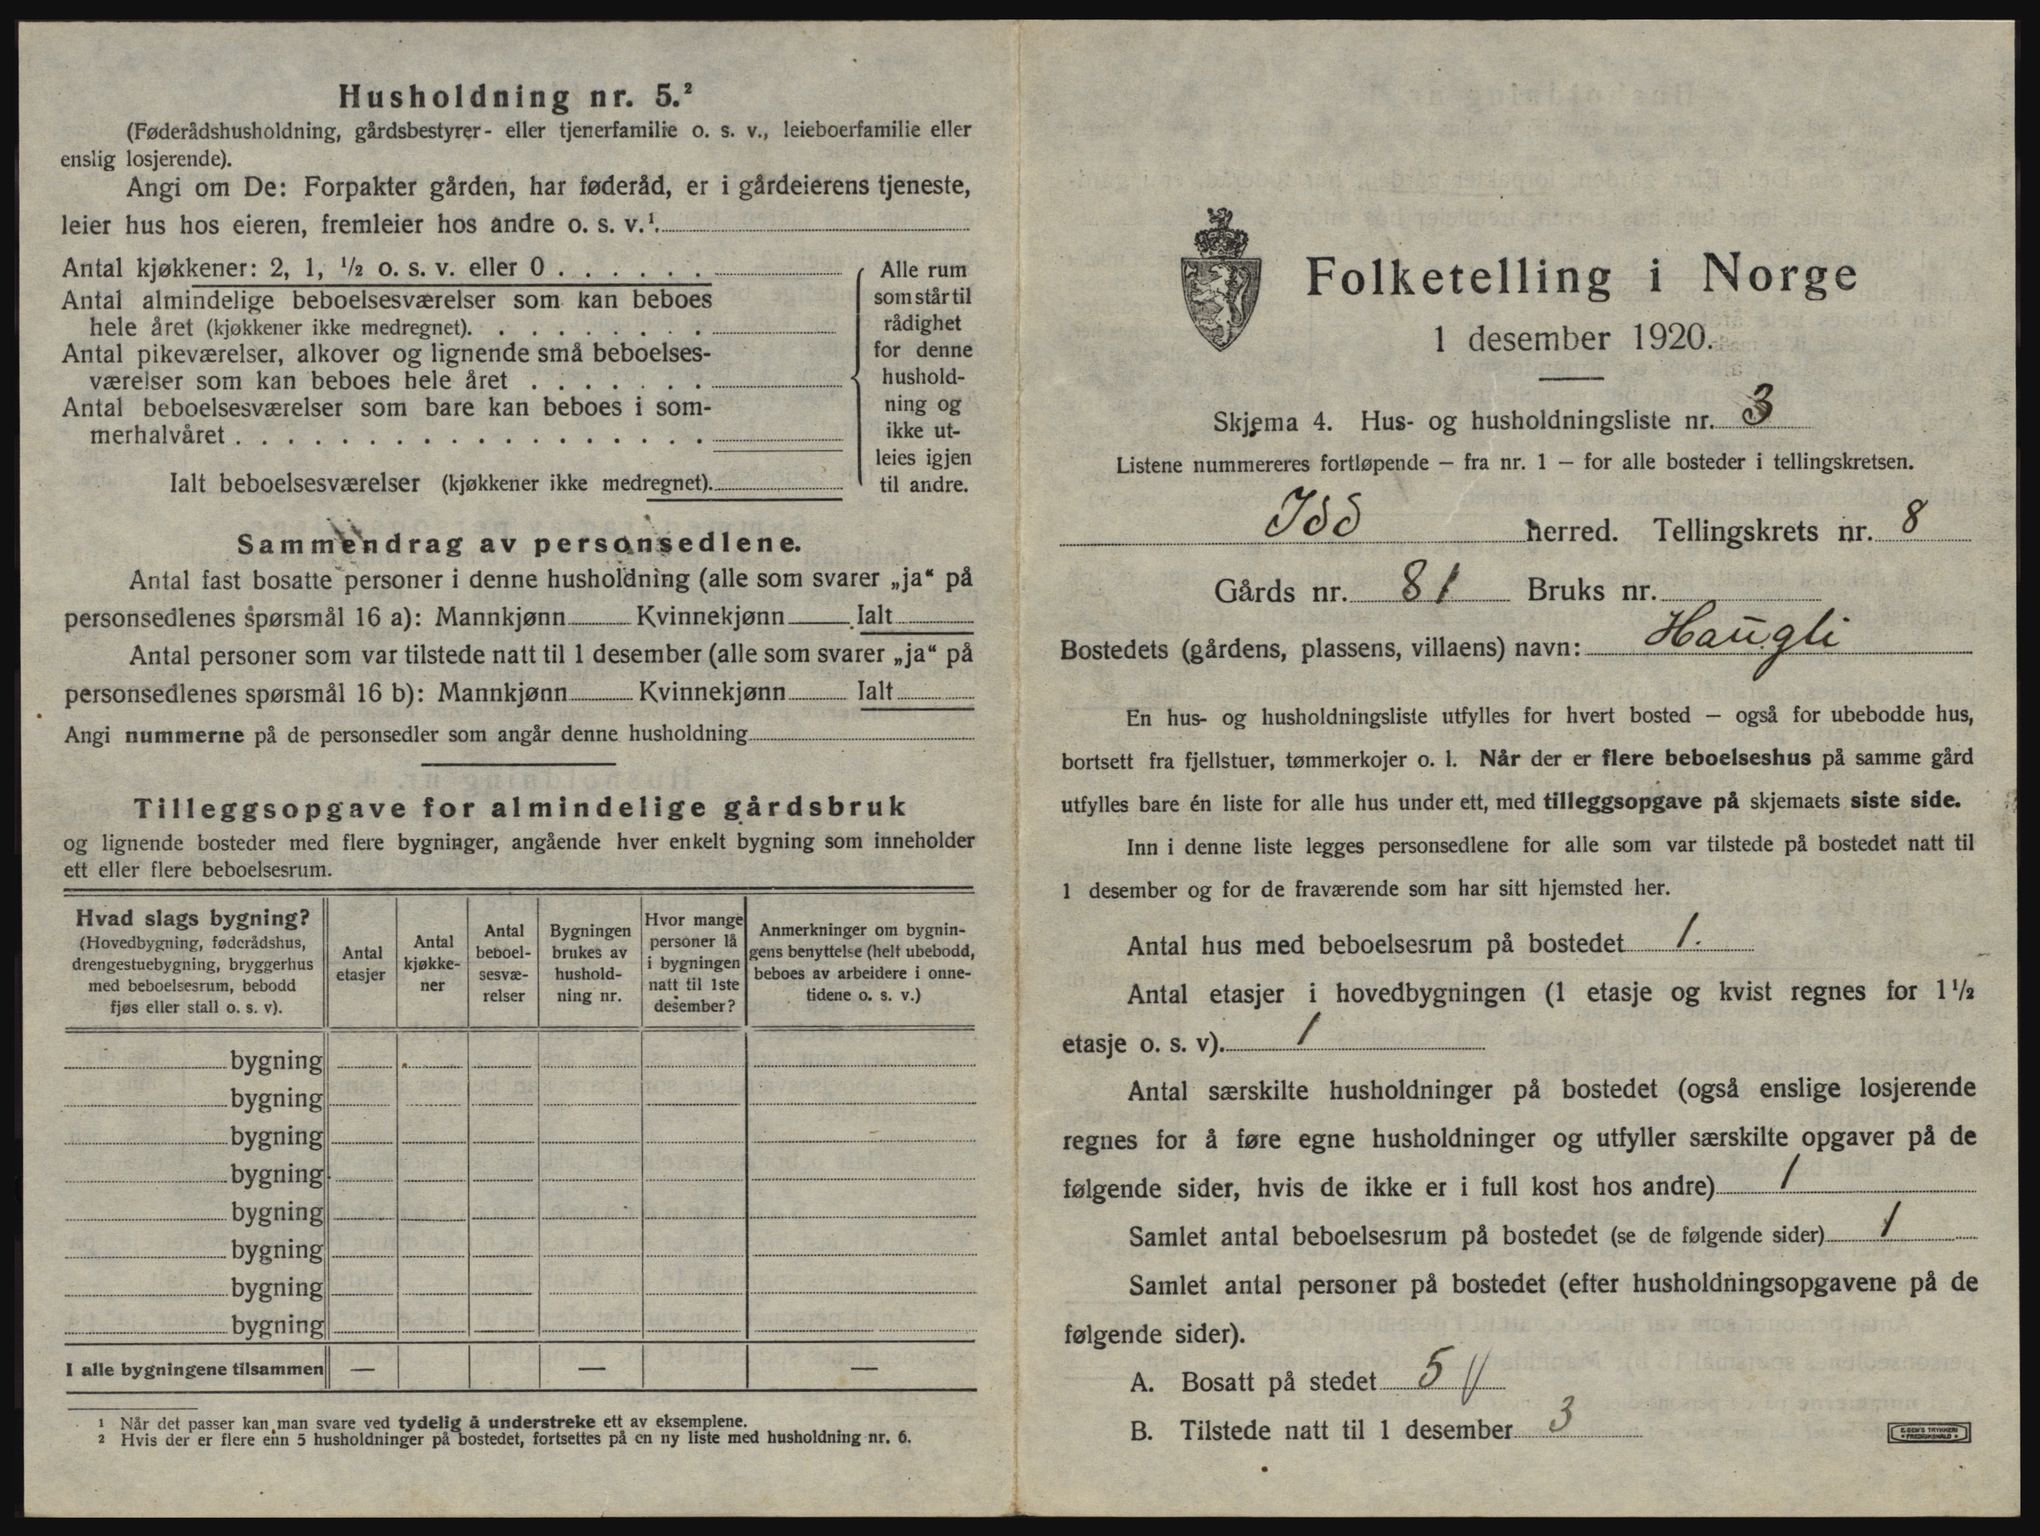 Husholdning nr. 5.²
(Føderådshusholdning, gårdsbestyrer- eller tjenerfamilie o. s. v., leieboerfamilie eller
enslig losjerende).
Angi om De: Forpakter gården, har føderåd, er i gårdeierens tjeneste,
leier hus hos eieren, fremleier hos andre o. s. v.¹.
Antal kjøkkener: 2, 1, ½ o. s. v. eller 0 . . . . . .
Antal almindelige beboelsesværelser som kan beboes
hele året (kjøkkener ikke medregnet). . . . . . . . .
Antal pikeværelser, alkover og lignende små beboelses-
værelser som kan beboes hele året . . . . . . .
Antal beboelsesværelser som bare kan beboes i som-
merhalvåret . . . . . . . . . . . . . . . . . .
Ialt beboelsesværelser (kjøkkener ikke medregnet).
Alle rum
som står til
rådighet
for denne
hushold-
ning og
ikke ut-
leies igjen
til andre.
Sammendrag av personsedlene.
Antal fast bosatte personer i denne husholdning (alle som svarer „ja“ på
personsedlenes spørsmål 16 a): Mannkjønn Kvinnekjønn Ialt
Antal personer som var tilstede natt til 1 desember (alle som svarer „ja“ på
personsedlenes spørsmål 16 b): Mannkjønn Kvinnekjønn Ialt
Angi nummerne på de personsedler som angår denne husholdning
Tilleggsopgave for almindelige gårdsbruk
og lignende bosteder med flere bygninger, angående hver enkelt bygning som inneholder
ett eller flere beboelsesrum.
Hvad slags bygning?
(Hovedbygning, føderådshus,
drengestuebygning, bryggerhus
med beboelsesrum, bebodd
fjøs eller stall o. s. v).
Antal
etasjer
Antal
kjøkke-
ner
Antal
beboel-
sesvæ-
relser
Bygningen
brukes av
hushold-
ning nr.
Hvor mange
personer lå
i bygningen
natt til 1ste
desember?
Anmerkninger om bygnin-
gens benyttelse (helt ubebodd,
beboes av arbeidere i onne-
tidene o. s. v.)
bygning
bygning
bygning
bygning
bygning
bygning
bygning
bygning
I alle bygningene tilsammen — — —
¹ Når det passer kan man svare ved tydelig å understreke ett av eksemplene.
² Hvis der er flere enn 5 husholdninger på bostedet, fortsettes på en ny liste med husholdning nr. 6.
Folketelling i Norge
1 desember 1920.
Skjema 4. Hus- og husholdningsliste nr. 3
Listene nummereres fortløpende – fra nr. 1 – for alle bosteder i tellingskretsen.
Idd herred. Tellingskrets nr. 8
Gårds nr. 81 Bruks nr.
Bostedets (gårdens, plassens, villaens) navn: Haugli
En hus- og husholdningsliste utfylles for hvert bosted – også for ubebodde hus,
bortsett fra fjellstuer, tømmerkojer o. l. Når der er flere beboelseshus på samme gård
utfylles bare én liste for alle hus under ett, med tilleggsopgave på skjemaets siste side.
Inn i denne liste legges personsedlene for alle som var tilstede på bostedet natt til
1 desember og for de fraværende som har sitt hjemsted her.
Antal hus med beboelsesrum på bostedet 1.
Antal etasjer i hovedbygningen (1 etasje og kvist regnes for 1½
etasje o. s. v). 1
Antal særskilte husholdninger på bostedet (også enslige losjerende
regnes for å føre egne husholdninger og utfyller særskilte opgaver på de
følgende sider, hvis de ikke er i full kost hos andre) 1
Samlet antal beboelsesrum på bostedet (se de følgende sider) 1
Samlet antal personer på bostedet (efter husholdningsopgavene på de
følgende sider).
A. Bosatt på stedet 5
B. Tilstede natt til 1 desember 3